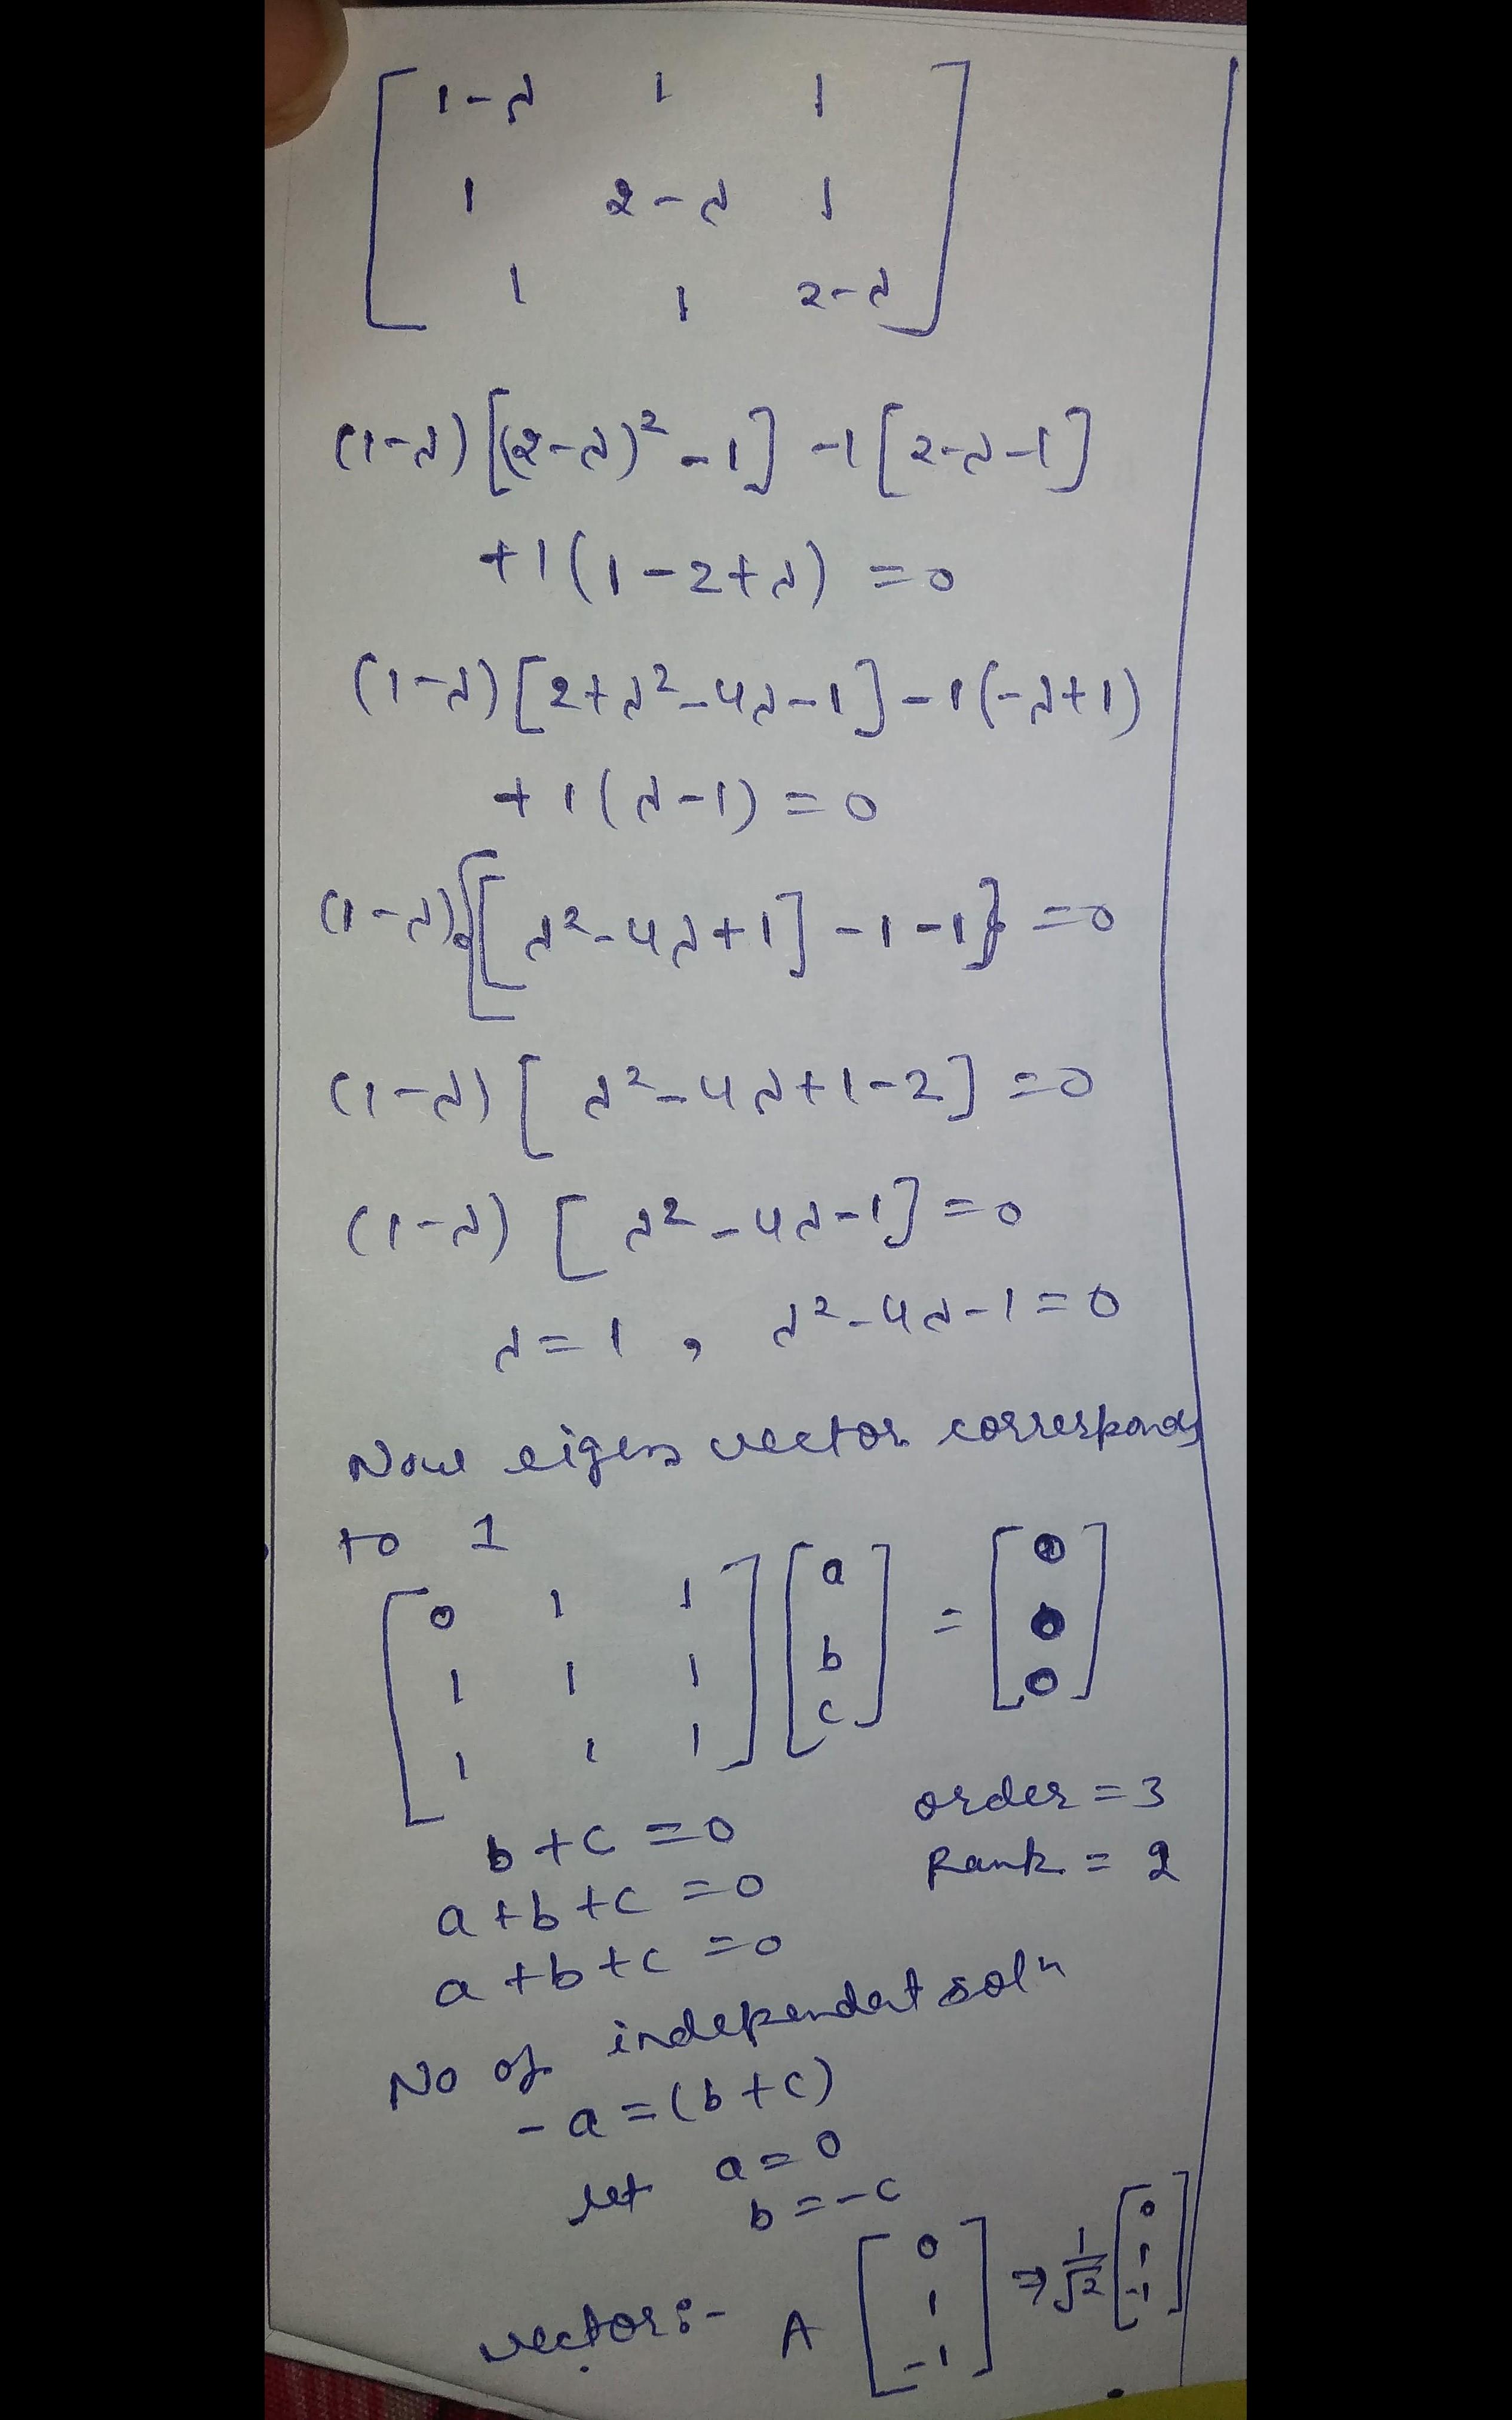 [ 1-λ 1 1 ]
[ 1 2-λ 1 ]
[ 1 1 2-λ ]
(1-λ)[(2-λ)² - 1] -1[2-λ-1]
+1(1-2+λ) = 0
(1-λ)[2+λ²-4λ-1] -1(-λ+1)
+1(λ-1) = 0
(1-λ){[λ²-4λ+1] -1-1} = 0
(1-λ)[λ²-4λ+1-2] = 0
(1-λ)[λ²-4λ-1] = 0
λ = 1, λ²-4λ-1 = 0
Now eigen vector corresponds
to 1
[ 0 1 1 ] [ a ] = [ 0 ]
[ 1 1 1 ] [ b ] [ 0 ]
[ 1 1 1 ] [ c ] [ 0 ]
order = 3
b+c = 0
Rank = 2
a+b+c = 0
a+b+c = 0
No of independent solⁿ
-a = (b+c)
let a = 0
b = -c
vector:- A [ 0 1 -1 ] ⇒ 1/√2 [ 0 1 -1 ]